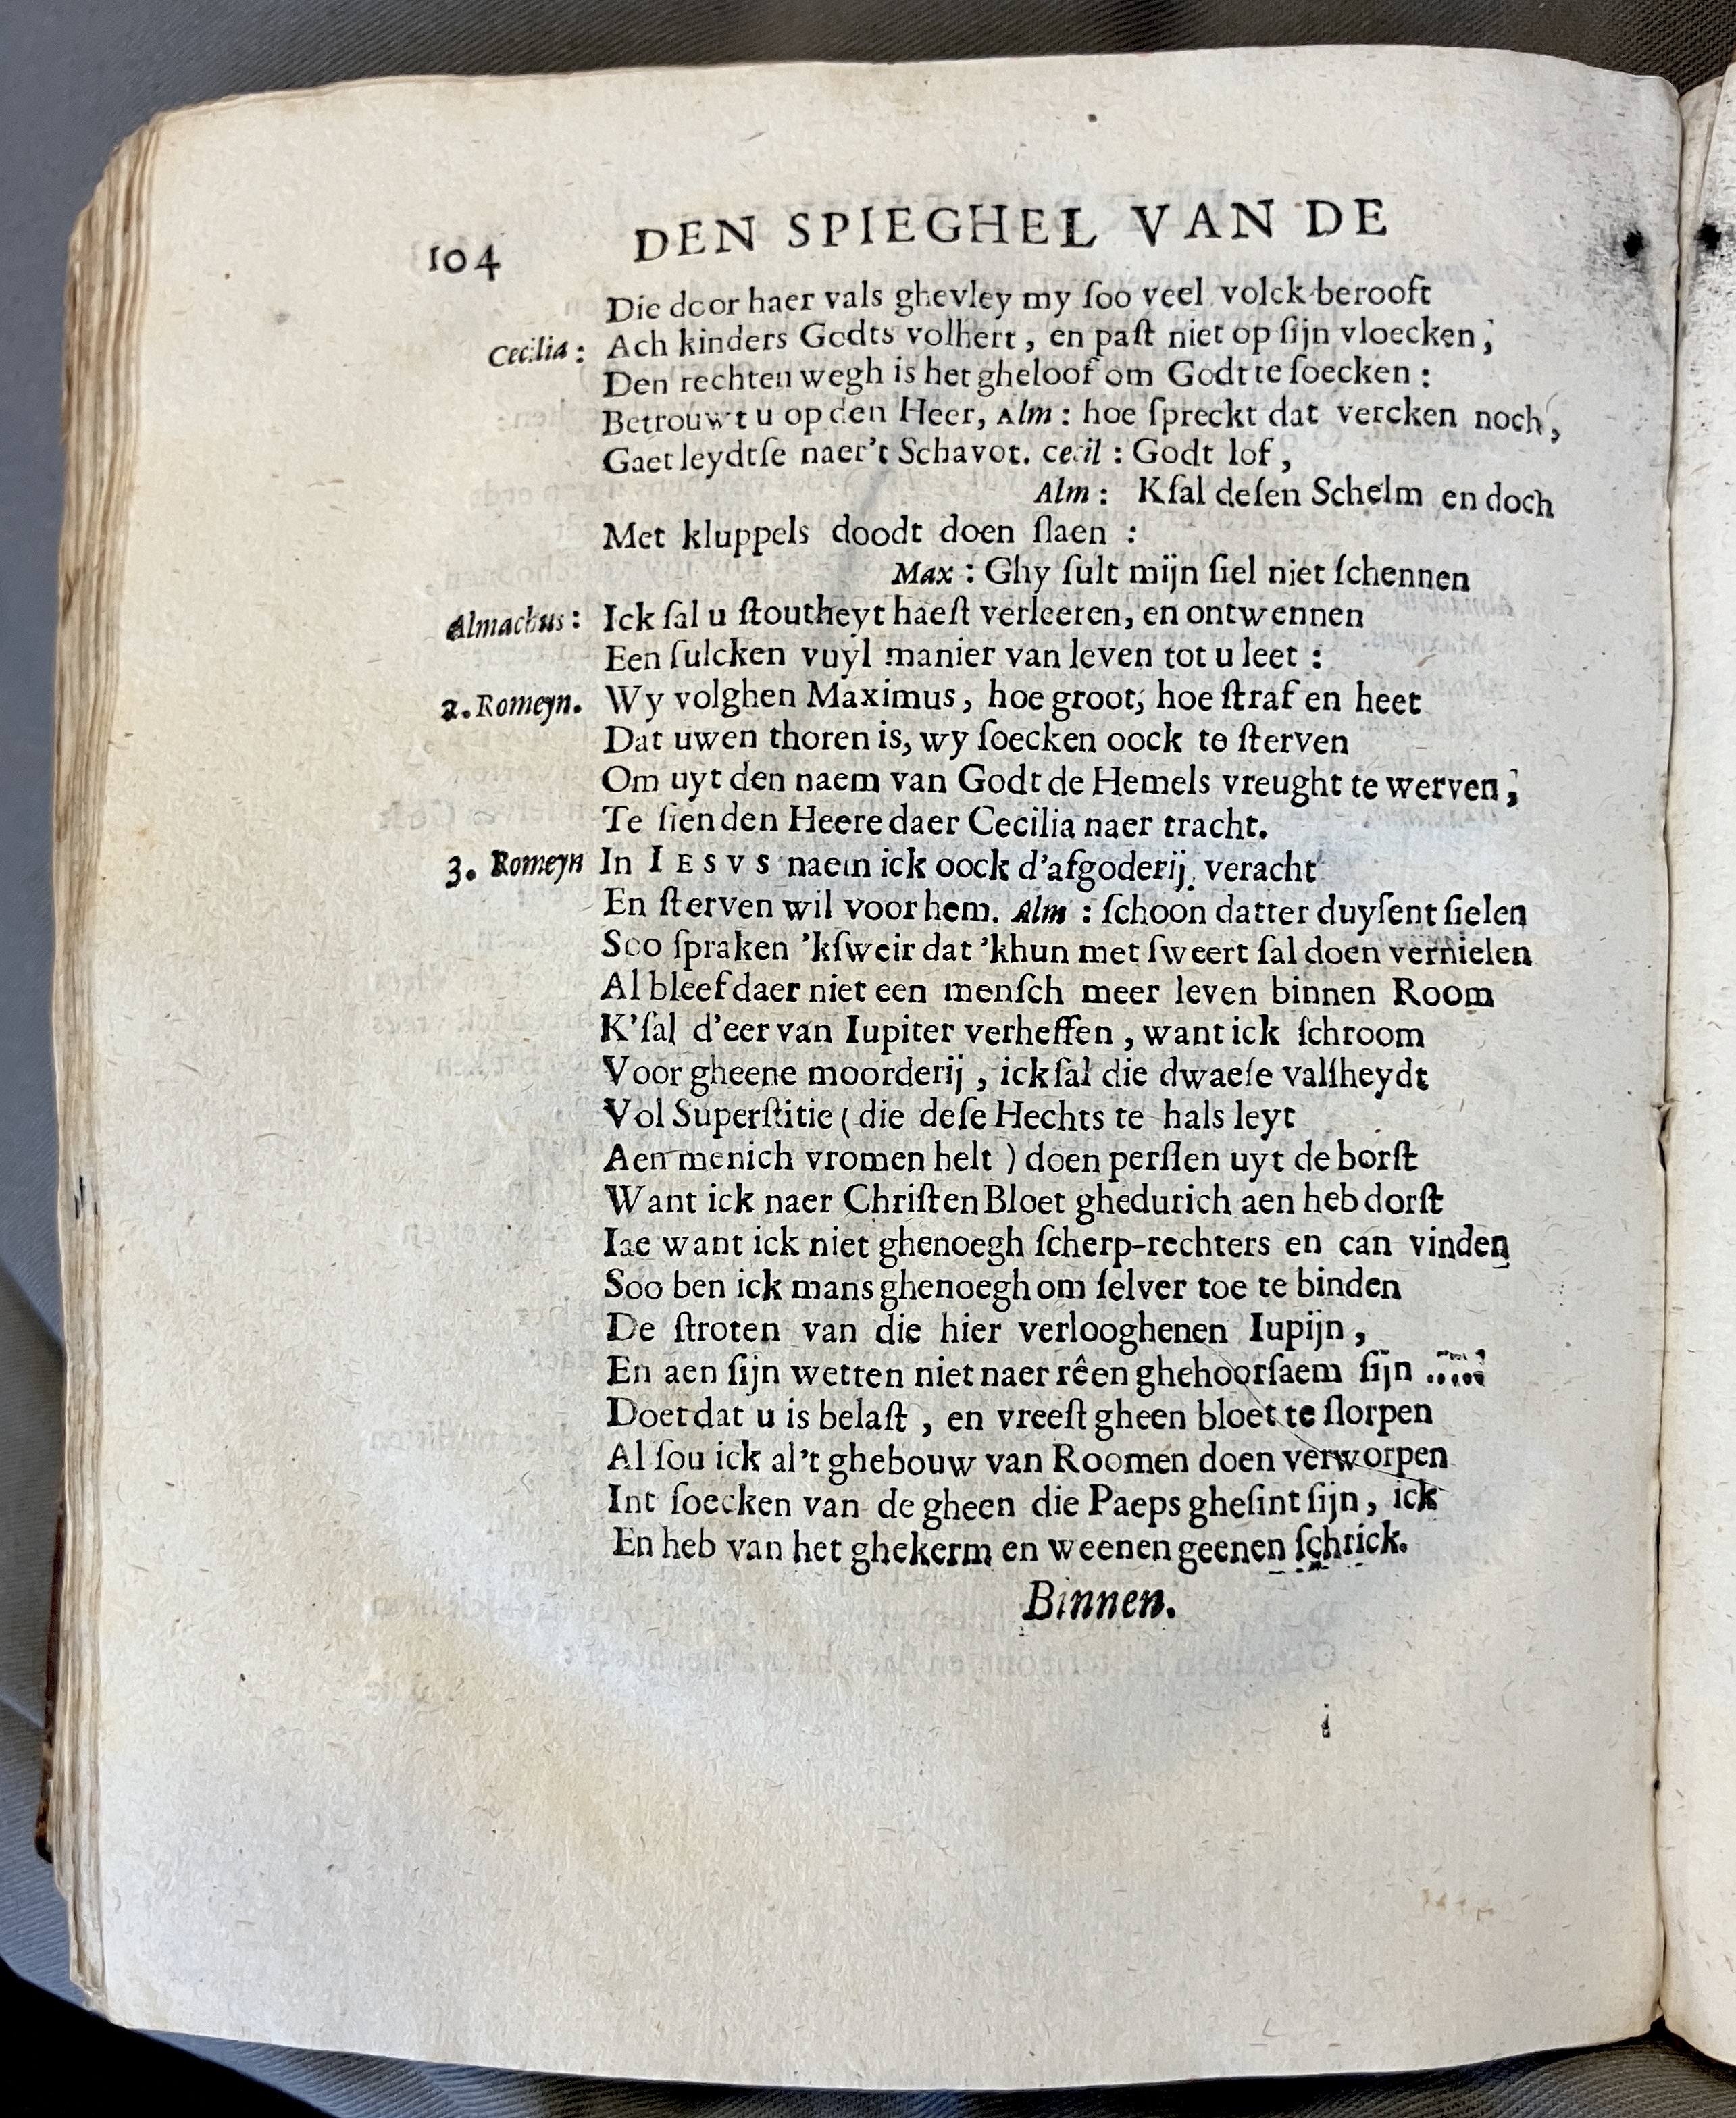 104 DEN SPIEGHEL VAN DE
Die door haer vals ghevley my ſoo veel volck berooft
Cecilia: Ach kinders Godts volhert, en paſt niet op ſijn vloecken,
Den rechten wegh is het gheloof om Godt te ſoecken:
Betrouwt u op den Heer, Alm: hoe ſpreckt dat vercken noch,
Gaet leydtſe naer't Schavot. Cecil: Godt lof,
Alm: Kſal deſen Schelm en doch
Met kluppels doodt doen ſlaen:
Max: Ghy ſult mijn ſiel niet ſchennen
Almachus: Ick ſal u ſtoutheyt haeſt verleeren, en ontwennen
Een ſulcken vuyl manier van leven tot u leet:
2. Romeyn. Wy volghen Maximus, hoe groot, hoe ſtraf en heet
Dat uwen thoren is, wy ſoecken oock te ſterven
Om uyt den naem van Godt de Hemels vreught te werven,
Te ſien den Heere daer Cecilia naer tracht.
3. Romeyn In IESVS naem ick oock d'afgoderij veracht
En ſterven wil voor hem. Alm: ſchoon datter duyſent ſielen
Soo ſpraken 'kſweir dat 'khun met ſweert ſal doen vernielen
Al bleef daer niet een menſch meer leven binnen Room
K'ſal d'eer van Iupiter verheffen, want ick ſchroom
Voor gheene moorderij, ick ſal die dwaeſe valſheydt
Vol Superſtitie (die deſe Hechts te hals leyt
Aen menich vromen helt) doen perſſen uyt de borſt
Want ick naer Chriſten Bloet ghedurich aen heb dorſt
Iae want ick niet ghenoegh ſcherp-rechters en can vinden
Soo ben ick mans ghenoegh om ſelver toe te binden
De ſtroten van die hier verlooghenen Iupijn,
En aen ſijn wetten niet naer rêen ghehoorſaem ſijn .....
Doet dat u is belaſt, en vreeſt gheen bloet te ſlorpen
Al ſou ick al't ghebouw van Roomen doen verworpen
Int ſoecken van de gheen die Paeps gheſint ſijn, ick
En heb van het ghekerm en weenen geenen ſchrick.
Binnen.